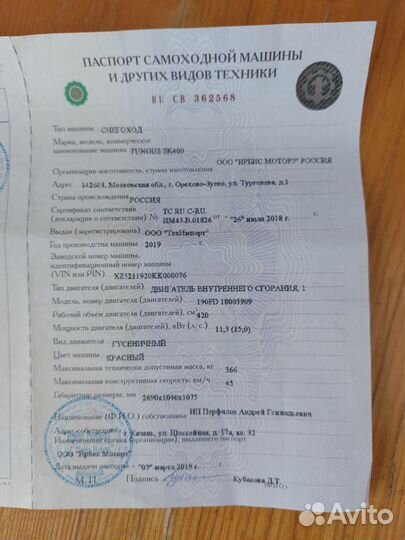 ПАСПОРТ САМОХОДНОЙ МАШИНЫ
И ДРУГИХ ВИДОВ ТЕХНИКИ
RU СВ 362568
Тип машины СНЕГОХОД
Марка, модель, коммерческое
наименование машины TUNGUS SK400
ООО "ИРБИС МОТОРЗ" РОССИЯ
Организация-изготовитель, страна изготовления
Адрес 142603, Московская обл., г. Орехово-Зуево, ул. Тургенева, д.1
Страна происхождения РОССИЯ
Сертификат соответствия ТС RU C-RU.
(декларация о соответствии) № ИМ43.В.01826 от "26" июля 2018 г.
Выдан (зарегистрирован) ООО "ТехИмпорт"
Год производства машины 2019
Заводской номер машины,
идентификационный номер машины
(VIN или PIN) XZ5211920KK000076
Тип двигателя (двигателей) ДВИГАТЕЛЬ ВНУТРЕННЕГО СГОРАНИЯ, 1
Модель, номер двигателя (двигателей) 190FD 18003909
Рабочий объем двигателя (двигателей), см 420
Мощность двигателя (двигателей), кВт (л. с.) 11,3 (15,0)
Вид движителя ГУСЕНИЧНЫЙ
Цвет машины КРАСНЫЙ
Максимальная технически допустимая масса, кг 366
Максимальная конструктивная скорость, км/ч 45
Габаритные размеры, мм 2690x1040x1075
Наименование (Ф.И.О.) собственника ИП Перфилов Андрей Геннадьевич
Адрес собственника г. Казань, ул. Шоссейная, д. 17а, кв. 32
Наименование органа (организации), выдавшего паспорт
ООО "Ирбис Моторз"
Дата выдачи паспорта "05" марта 2019 г.
М. П. Подпись Кубасова Д.Т.
Avito